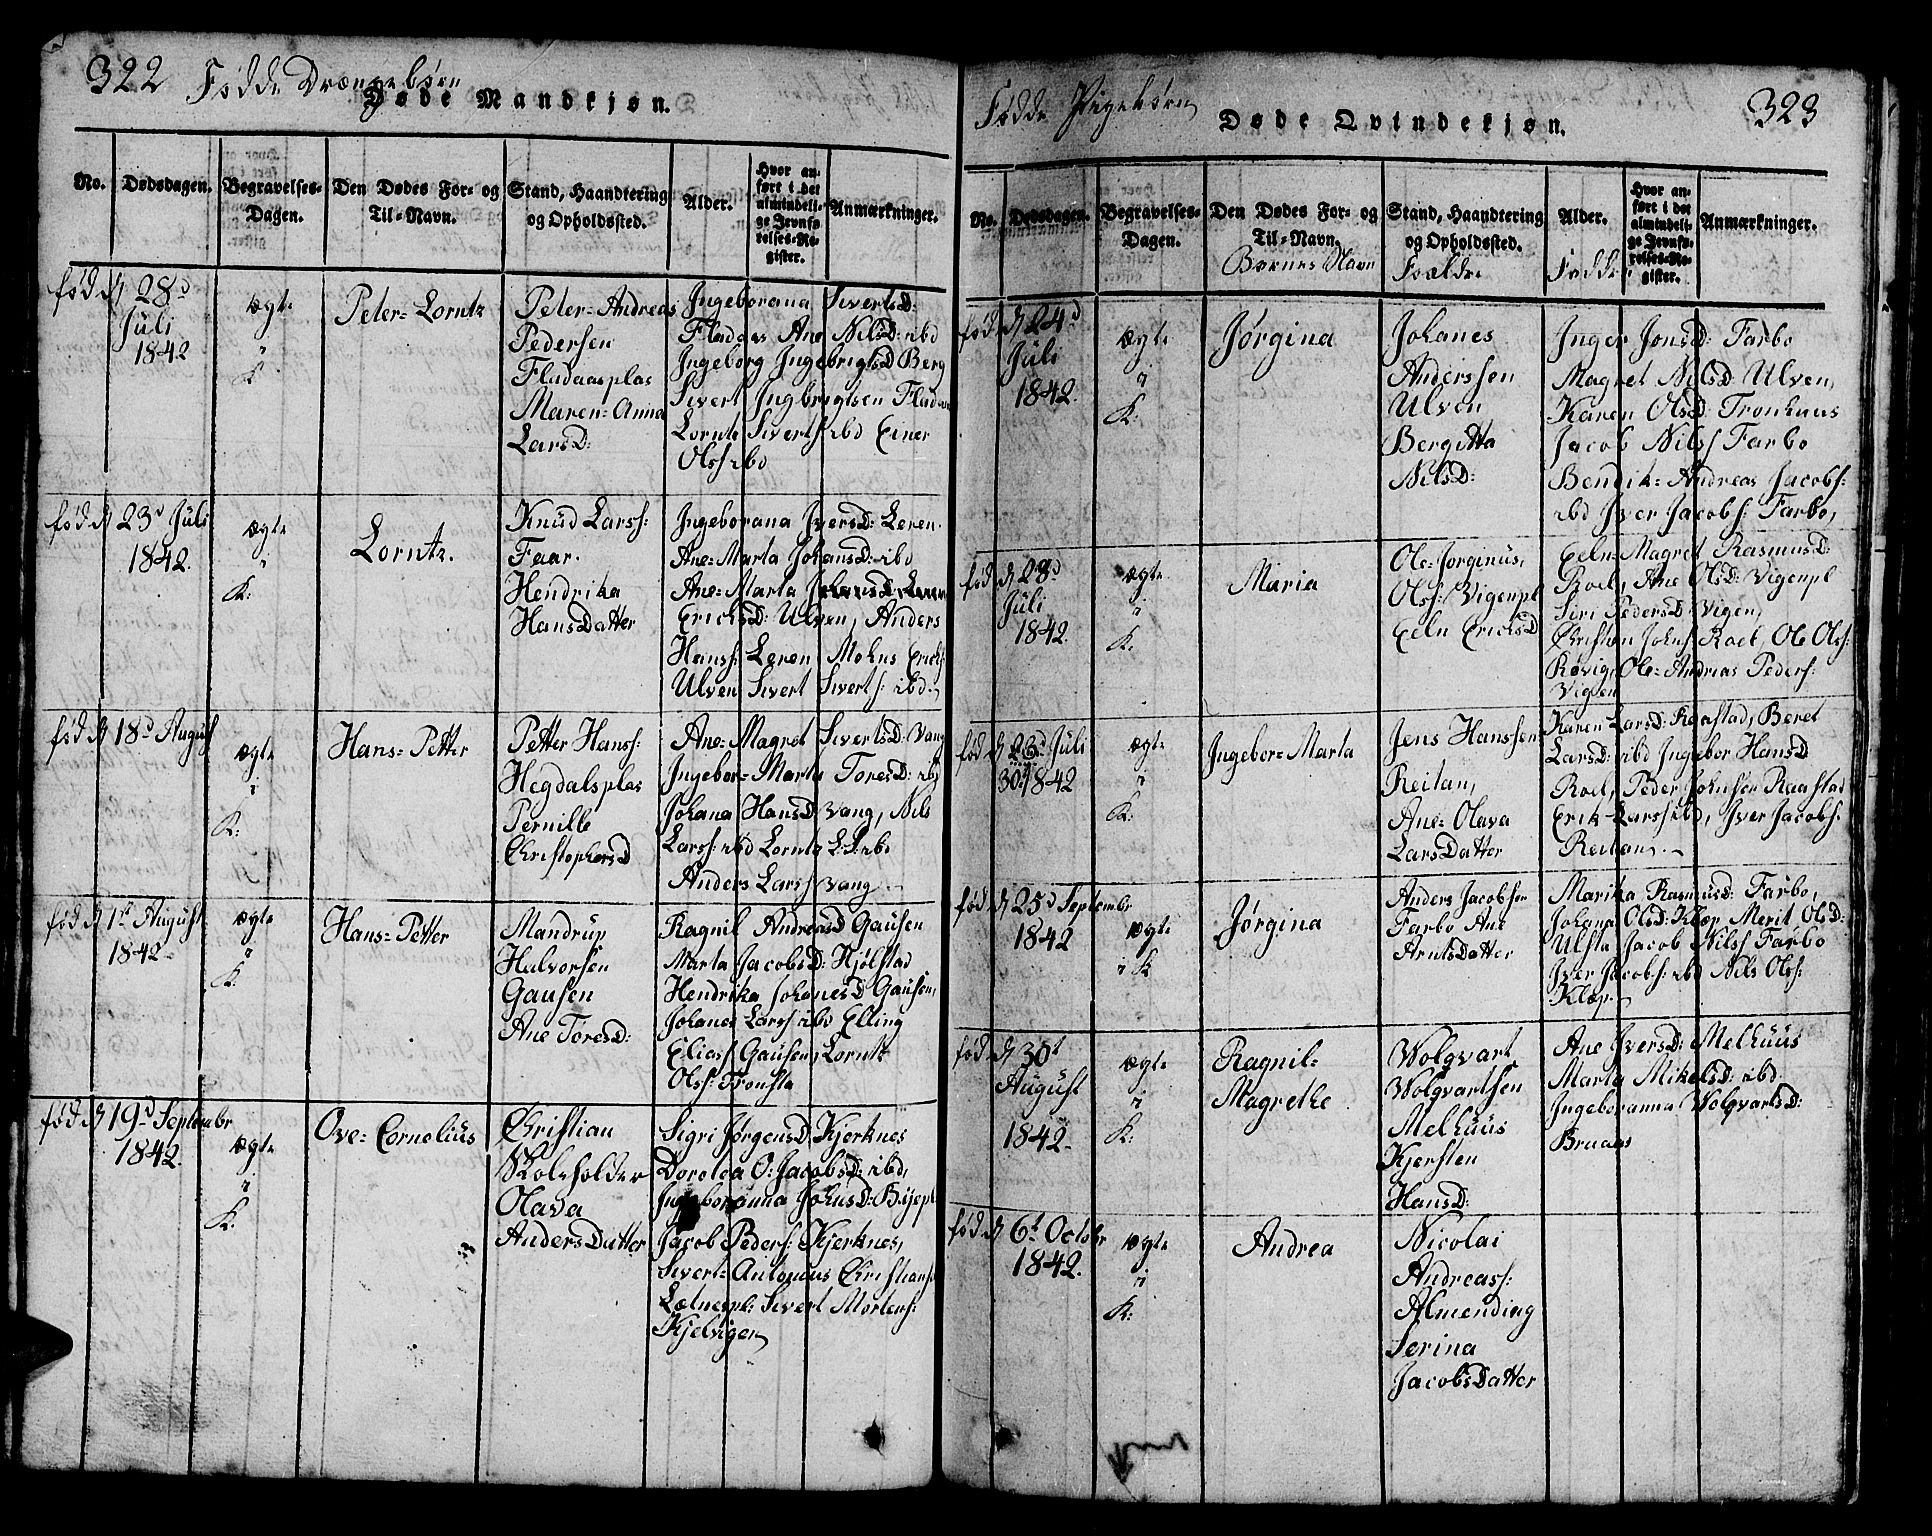 322 Fødde Drængebørn
Døde Mandkjøn.
No. Dødsdagen. Begravelses-Dagen. Den Dødes For- og Til-Navn. Stand, Haandtering og Opholdssted. Alder. Hvor anført i det almindelige Jevnførelses-Register. Anmærkninger.
fød d 28d
Juli
1842
ægte
"
K
Peter= Lorntz
Peter= Andreas
Pedersen
Fladaasplas
Maren= Anna
LarsD:
Ingeborana SivertsD:
Fladaas Ane NilsD: ibd
Ingeborg IngebrigtsD Berg
Sivert Ingbrigtsen
Lornts Siverts ibd Einer
Olss ibd
fød d 23d Juli
1842.
ægte
"
K:
Lorntz.
Knud Larss:
Faar.
Hendrika
HansDatter
Ingeborana IversD: Leren.
Ane=Marta JohansD: ibd
Ane=Marta
ErichsD: Ulven, Anders
Hanss: Leren Mohns Erichs
Ulven Sivert Siverts: ibd.
fød d 18d August
ægte
i
K:
Hans= Petter
Petter Hanss:
Hegdalsplas
Pernille
ChristophersD
Ane= Magret SivertsD: Vang
Ingebor= Marta ToresD: ibd
Johana HansD Vang, Nils
Larss: ibd Lorntz L:S: ibd
Anders Larss Vang
fød d 1st August
1842
ægte
"
K:
Hans= Petter
Mandrup
Halvorsen
Gausen
Ane ToresD:
Ragnil AndreasD Gausen
Marta JacobsD: Hjølstad
Hendrika JohanesD Gausen,
Johanes Larss ibd Elling
Eliass Gausen, Lorntz
Olss: Tronsta
fød d 19d Septembr
1842.
ægte
i
K:
Ove= Cornelius
Christian
Skoleholder
Olava
AndersDatter
Sigri JørgensD Kjerknes
Dorotea O: JacobsD: ibd,
Ingeboranna JohnsD:
Jacob Peders: Kjerknes,
Sivert= Antonius Christians
Letnespl: Sivert Mortens:
Kjelvigen
Fødde Pigebørn
323
Døde Qvindekjøn.
No. Dødsdagen. Begravelses-Dagen. Den Dødes For- og Til-Navn. Stand, Haandtering og Opholdssted. Alder. Hvor anført i det almindelige Jevnførelses-Register. Anmærkninger.
Børnes Navn Forældre Fadde
fød d 24d
Juli
1842.
Ægte
"
K:
Jørgina
Johanes
Anderssen
Ulven
Bergitta
NilsD:
Inger JonsD: Farbo
Magret NilsD: Ulven,
Karen OlsD: Tronhuus
Jacob Nilss Farbo
Bendik= Andreas Jacobs:
ibd Iver Jacobs: Farbo,
fød d 28d
Juli
1842.
ægte
"
K:
Maria
Ole= Jorginus,
Olss: Vigenpl
Eeln ErichsD
Eeln= Magret RasmusD:
Roel, Ane OlsD: Vigenpl
Siri PedersD Vigen,
Christen Johns Roel, Ole Olss:
Røvig, Ole= Andreas Peders:
Vigen
fød d 23d Juli
30t 1842
ægte
"
K:
Ingebor= Marta
Jens Hanssen
Reitan,
Ane= Olava
LarsDatter
Karen LarsD: Raastad, Beret
LarsD: ibd Ingebor HansD
Roel, Peder Johnsen Raastad
Erik Larss: ibd, Iver Jacobs:
Reitan.
fød d 25d Septembr
1842
ægte
i K
Jørgina
Anders Jacobsen
Farbo Ane
ArntsDatter
Marika RasmusD: Farbo,
Johana OlsD: Klæp Merit OlsD:
Ulsta Jacob Nilss Farbo
Iver Jacobs: ibd Nils Olss:
Klæp.
fød d 30t
August
1842
ægte
i
K:
Ragnil=
Magrethe
Wolgvart
Wolgvartsen
Melhuus
Kjersten
HansD:
Ane IversD: Melhuus
Marta MikelsD: ibd.
Ingeboranna WolgvartsD:
Bruaas
fød d 6t Octobr
1842.
ægte
i
K:
Andrea
Nicolai
Andreass:
Almending
Serina
JacobsDatter